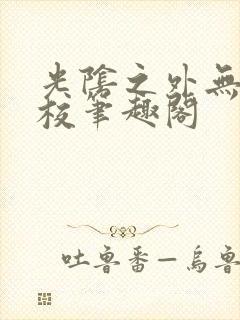 光陰之外無
校筆趣閣
吐魯番—烏魯